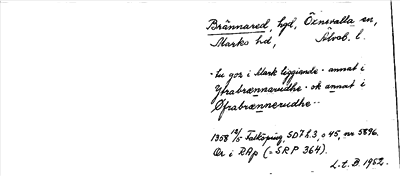 Brännared, hgd, Öxnevalla sn,
Marks hd, Älvsb. l.
"tu gor i Mark liggiande · annat i
Ytrabrænnarudhe · ok annat i
Øfrabrænnerudhe"
1358 12/5 Falköping, SD 7 h.3, s 45, nr 5896.
Or i RAp (= SRP 364).
L.t. B. 1952.